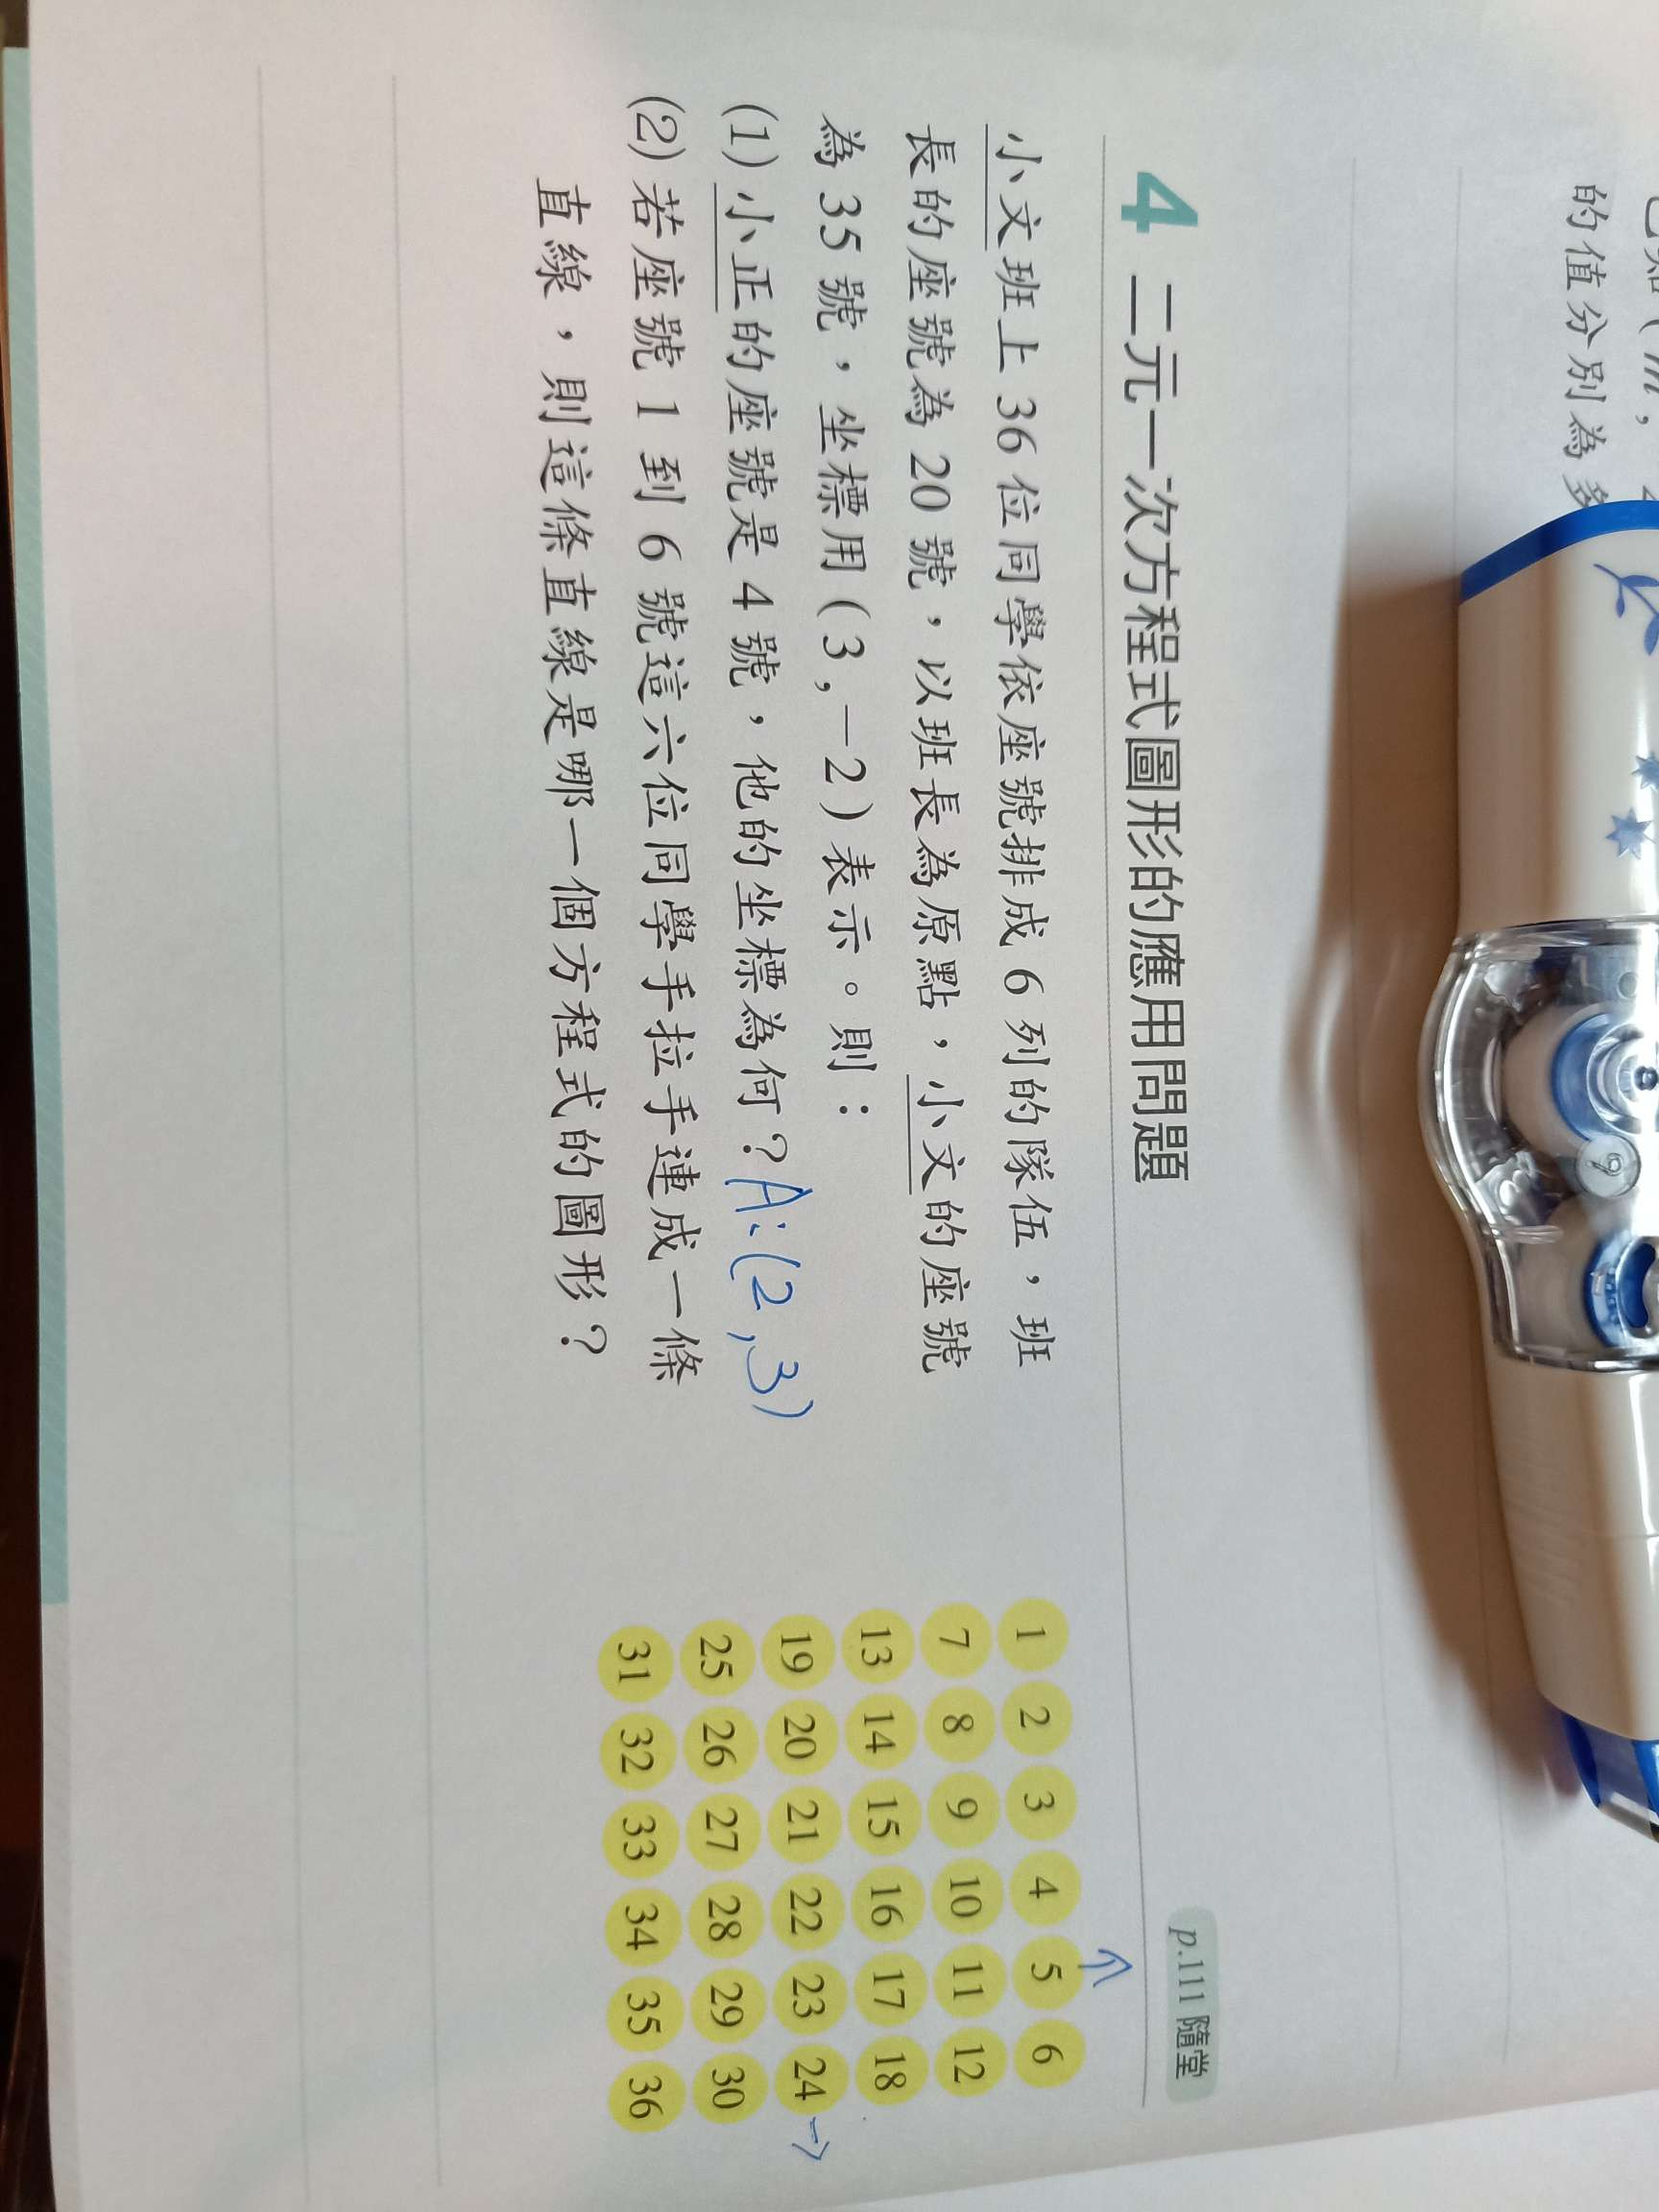 的值分別為多
4 二元一次方程式圖形的應用問題
p.111 隨堂
小文班上 36 位同學依座號排成 6 列的隊伍，班
長的座號為 20 號，以班長為原點，小文的座號
為 35 號，坐標用(3,－2)表示。則：
(1) 小正的座號是 4 號，他的坐標為何？A:(2,3)
(2) 若座號 1 到 6 號這六位同學手拉手連成一條
直線，則這條直線是哪一個方程式的圖形？
1 2 3 4 5 6
7 8 9 10 11 12
13 14 15 16 17 18
19 20 21 22 23 24
25 26 27 28 29 30
31 32 33 34 35 36